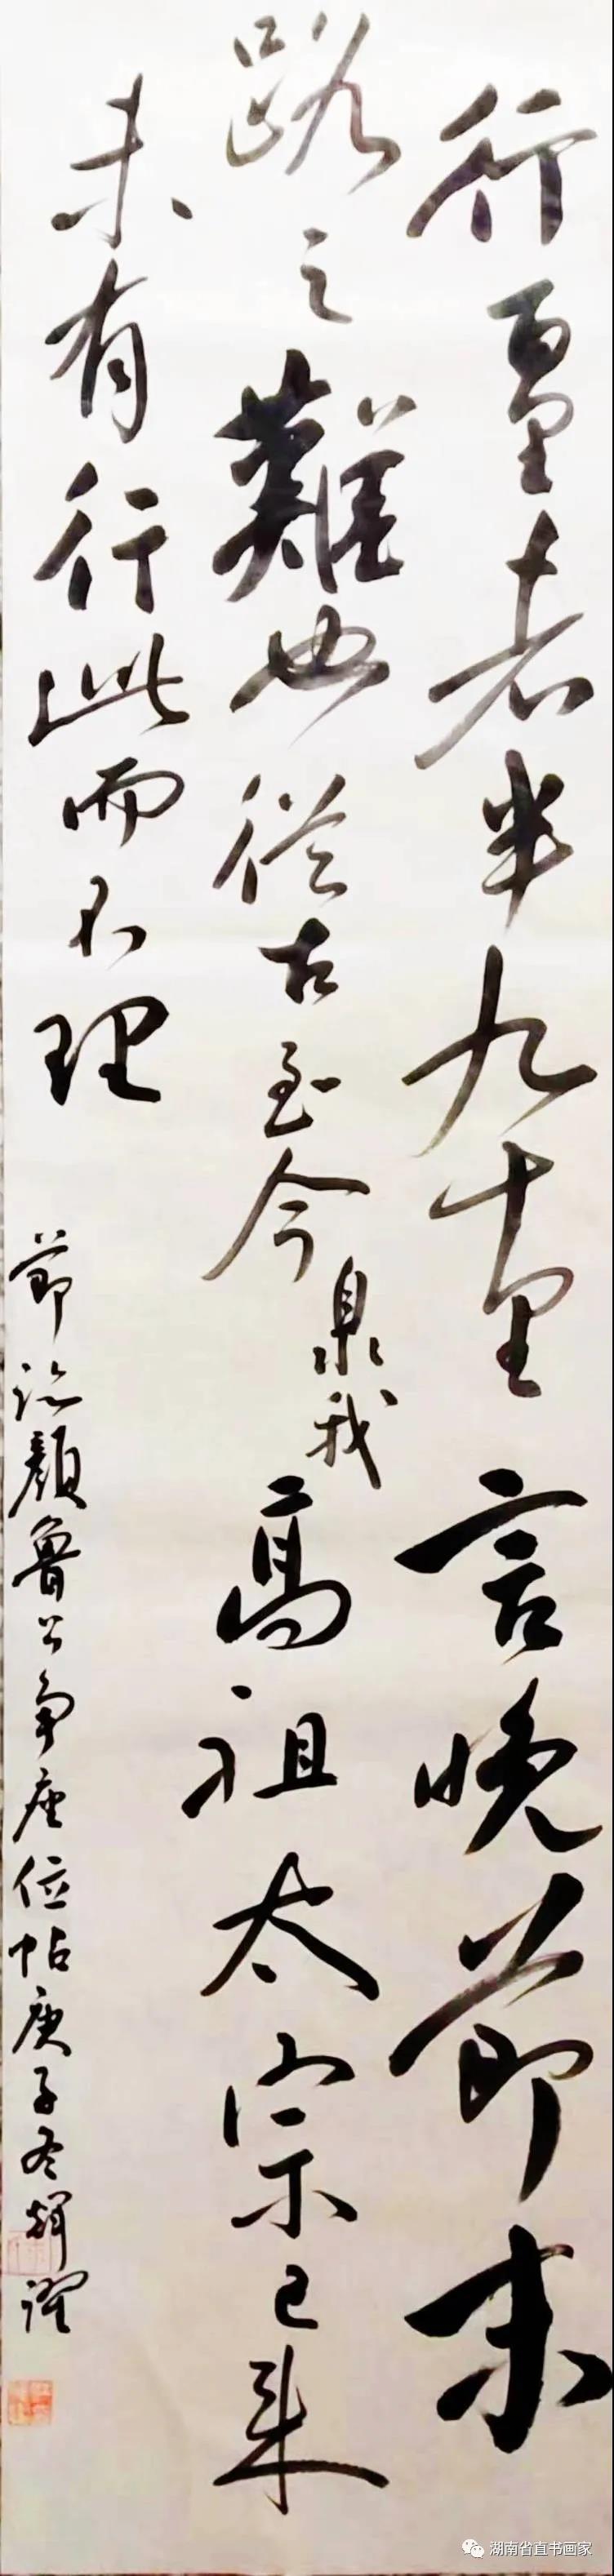 行百里者半九十里言晚節末
路之難也從古至今泉我高祖太宗已來
未有行此而不理
節臨顏魯公争座位帖庚子冬輝
湖南省直书画家